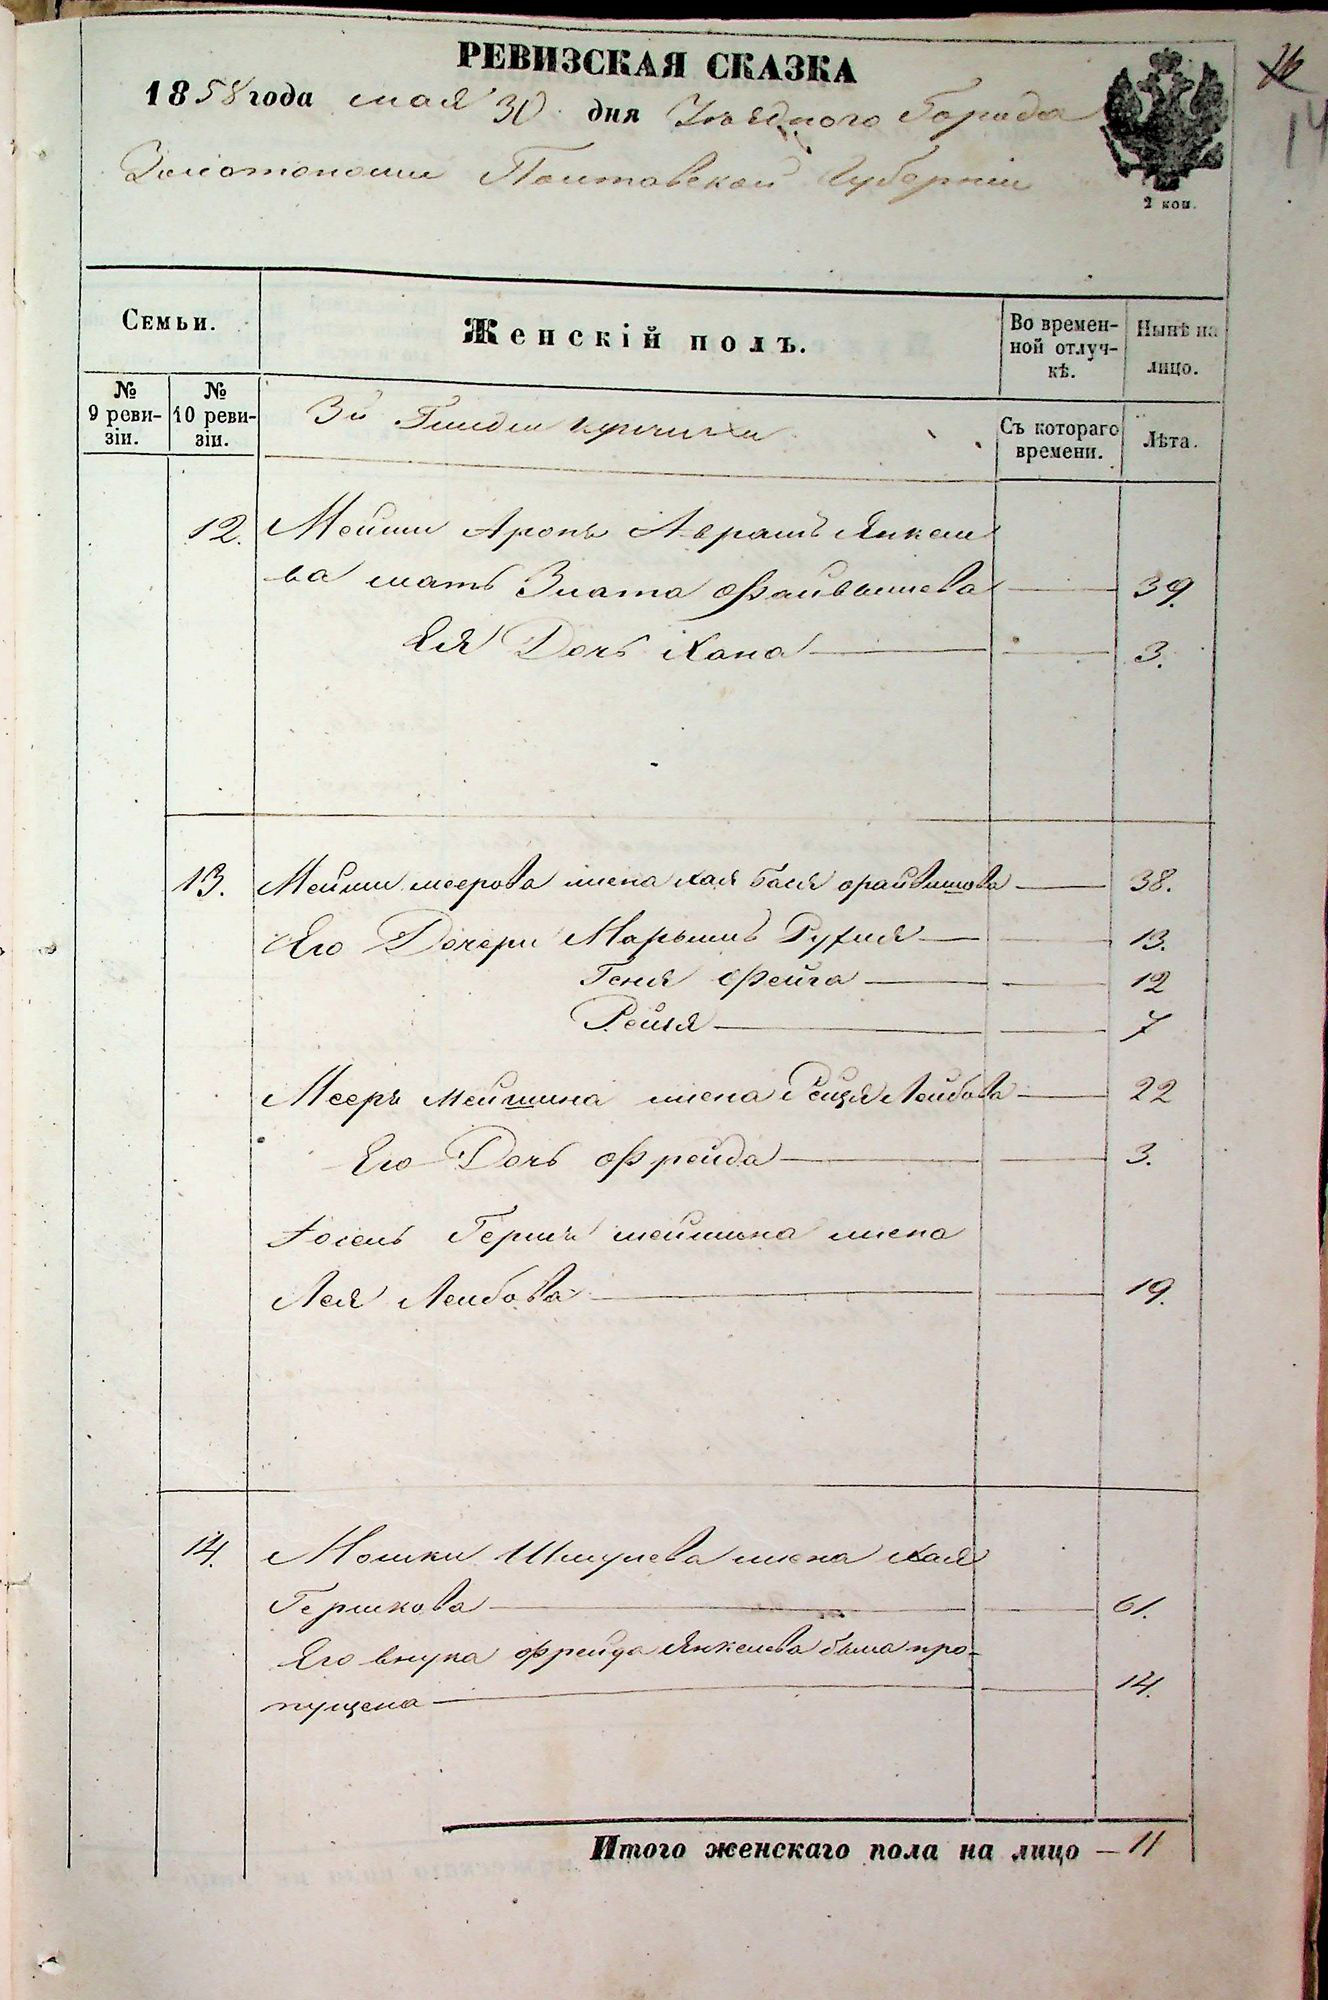 РЕВИЗСКАЯ СКАЗКА
1858 года мая 30 дня Уѣзднаго Города
Золотоноши Полтавской Губерніи
2 коп.
14
Семьи.
Женскій полъ.
Во времен-
ной отлуч-
кѣ.
Нынѣ на
лицо.
№
9 реви-
зіи.
№
10 реви-
зіи.
3й Гильдіи купчихи
Съ котораго
времени.
Лѣта.
12. Мейши Аронъ Аврамъ Янкеле
ва мать Злата Файвышева 39.
Ея Дочь Хана 3.
13. Мейши меерова жена Хая Бася Файвишова 38.
Его Дочери Марьямъ Рухля 13.
Геня Фейга 12
Рейзя 7
Мееръ мейшина жена Рейзя Лейбова 22
Его Дочь Фрейда 3.
Іосель Гершъ мейшина жена
Лея Лейбова 19.
14. Мошки Шмулева жена Хая
Гершкова 61.
Его внука Фрейда Янкелева была про-
пущена 14.
Итого женскаго пола на лицо — 11